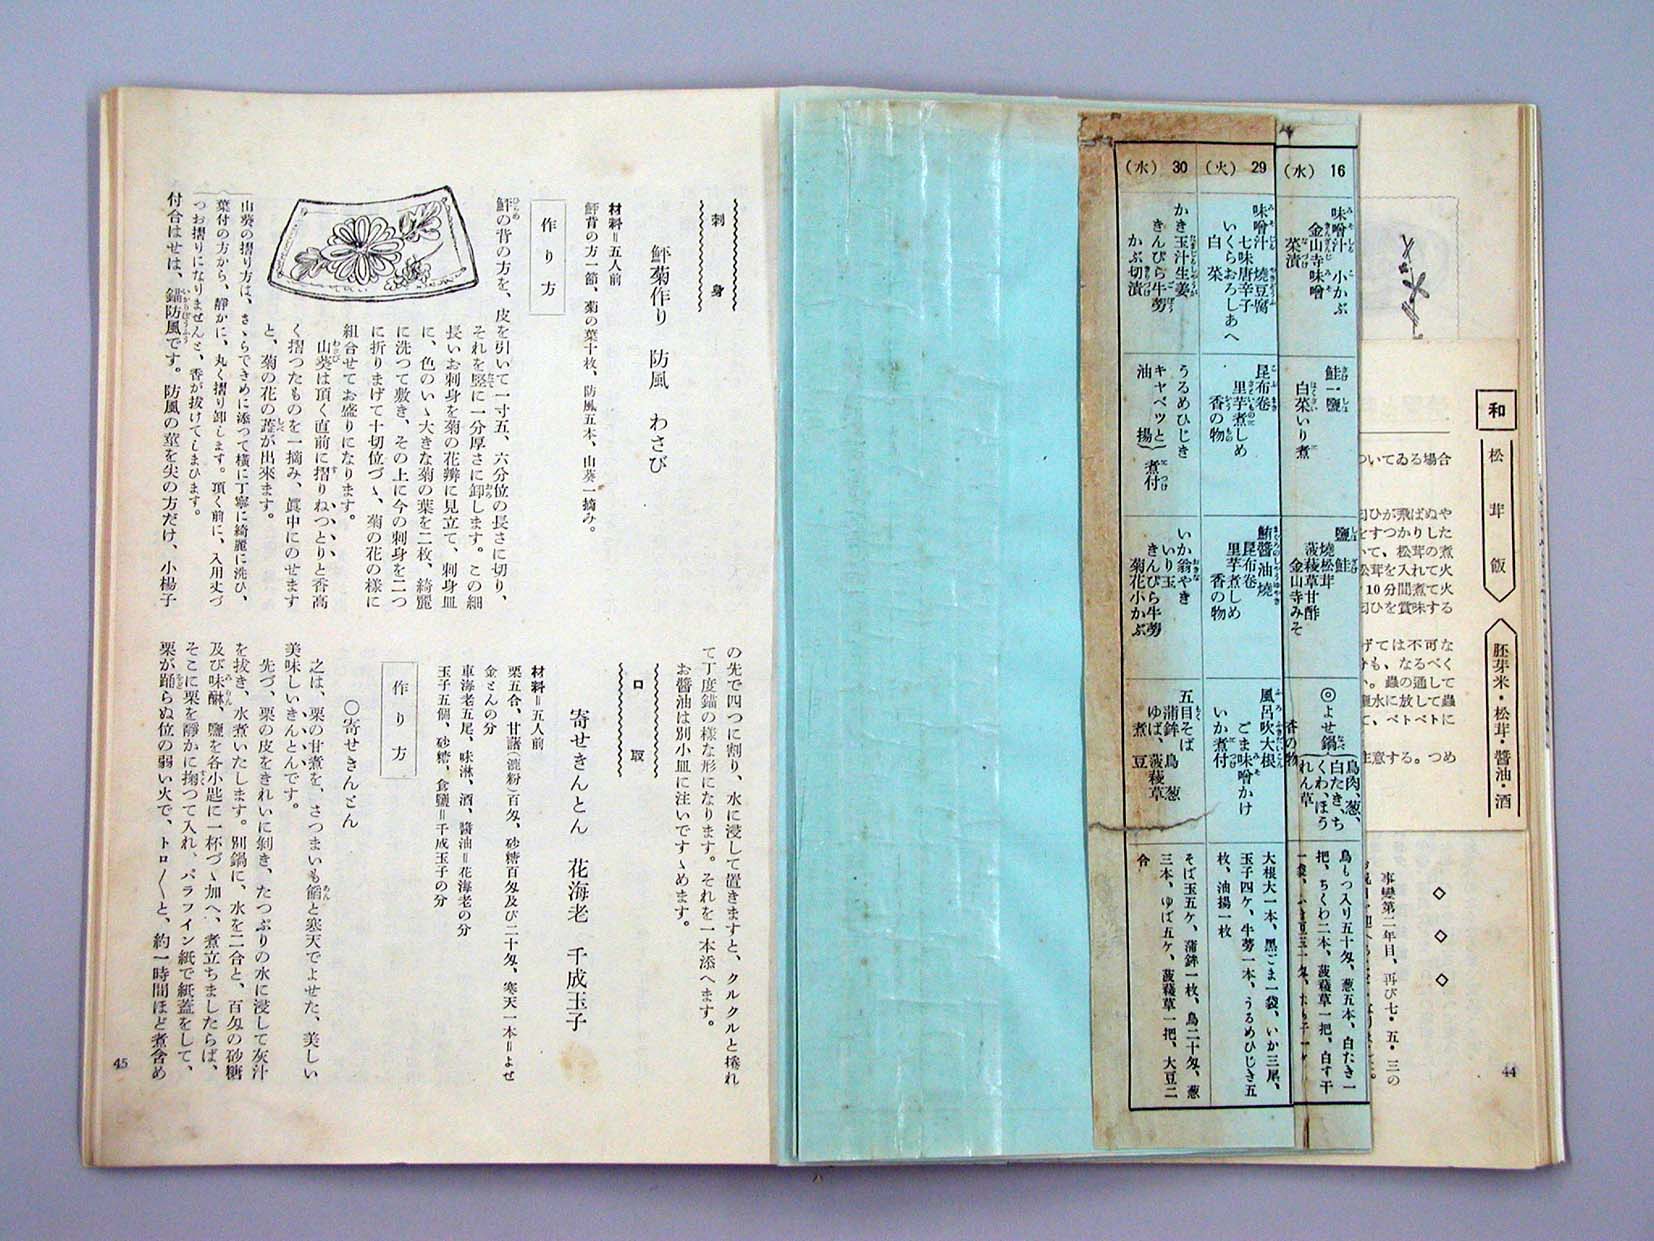 和
松茸飯
胚芽米・松茸・醬油・酒
ついてゐる場合
匂ひが飛ばぬや
をすつかりした
いて、松茸の煮
松茸を入れて火
10分間煮て火
匂ひを賞味する
げては不可な
も、なるべく
い。蟲の通して
鹽水に放して蟲
て、ベトベトに
注意する。つめ
◇ ◇ ◇
事變第二年目、再び七・五・三の
44
16 (水)
味噌汁 小かぶ
金山寺味噌
菜漬
鮭一鹽
白菜いり煮
鹽鮭
燒松茸
菠薐草甘酢
金山寺みそ
◎よせ鍋(鳥肉、葱、
白たき、ち
くわ、ほう
れん草
香の物
鳥もつ入り五十匁、葱五本、白たき一
把、ちくわ二本、菠薐草一把、白す干
29 (火)
味噌汁 燒豆腐
七味唐辛子
いくらおろしあへ
白菜
昆布卷
里芋煮しめ
香の物
鮪醬油燒
昆布卷
里芋煮しめ
香の物
風呂吹大根
ごま味噌かけ
いか煮付
大根大一本、黑ごま一袋、いか三尾、
玉子四ケ、牛蒡一本、うるめひじき五
枚、油揚一枚
30 (水)
かき玉汁生姜
きんぴら牛蒡
かぶ切漬
うるめひじき
キャベツと
油揚)煮付
いか翁やき
いり玉
きんぴら牛蒡
菊花小かぶ
五目そば
蒲鉾 鳥 葱
ゆば、菠薐草
煮豆
そば玉五ケ、蒲鉾一枚、鳥二十匁、葱
三本、ゆば五ケ、菠薐草一把、大豆二
合
刺身
鮃菊作り 防風 わさび
材料=五人前
鮃背の方一節、菊の葉十枚、防風五本、山葵一摘み。
作り方
鮃の背の方を、皮を引いて一寸五、六分位の長さに切り、
それを竪に一分厚さに卸します。この細
長いお刺身を菊の花瓣に見立て、刺身皿
に、色のいゝ大きな菊の葉を二枚、綺麗
に洗つて敷き、その上に今の刺身を二つ
に折りまげて十切位づゝ、菊の花の樣に
組合せてお盛りになります。
山葵は頂く直前に摺りねつとりと香高
く摺つたものを一摘み、眞中にのせます
と、菊の花の蕋が出來ます。
山葵の摺り方は、さゝらできめに添つて橫に丁寧に綺麗に洗ひ、
葉付の方から、靜かに、丸く摺り卸します。頂く前に、入用丈づ
つお摺りになりませんと、香が拔けてしまひます。
付合はせは、錨防風です。防風の莖を尖の方だけ、小楊子
の先で四つに割り、水に浸して置きますと、クルクルと捲れ
て丁度錨の樣な形になります。それを一本添へます。
お醬油は別小皿に注いですゝめます。
口取
寄せきんとん 花海老 千成玉子
材料=五人前
栗五合、甘藷(漉粉)百匁、砂糖百匁及び二十匁、寒天一本=よせ
金とんの分
車海老五尾、味淋、酒、醬油=花海老の分
玉子五個、砂糖、食鹽=千成玉子の分
作り方
○寄せきんとん
之は、栗の甘煮を、さつまいも餡と寒天でよせた、美しい
美味しいきんとんです。
先づ、栗の皮をきれいに剝き、たつぷりの水に浸して灰汁
を拔き、水煮いたします。別鍋に、水を二合と、百匁の砂糖
及び味醂、鹽を各小匙に一杯づゝ加へ、煮立ちましたらば、
そこに栗を靜かに掬つて入れ、パラフイン紙で紙蓋をして、
栗が踊らぬ位の弱い火で、トロ〳〵と、約一時間ほど煮含め
45